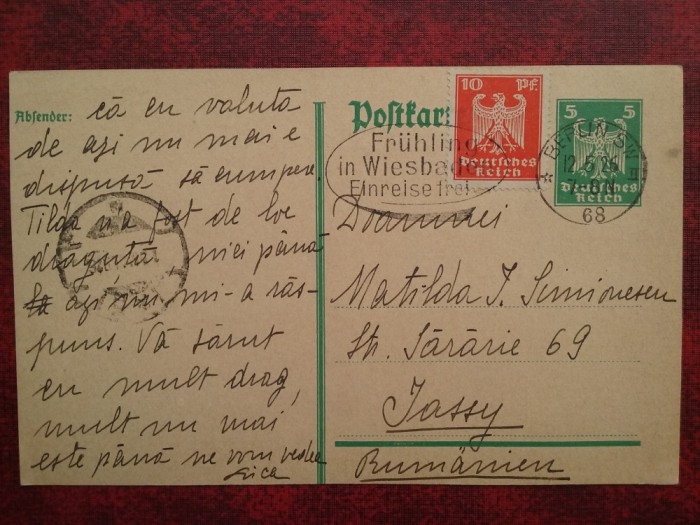 Absender:
că cu valuta
de azi nu mai e
dispusă să cumpere.
Tilda n'a fost de loc
drăguță, nici până
azi nu mi-a răs-
puns. Vă sărut
cu mult drag,
mult nu mai
este până ne vom vedea
Postkar
10 Pf.
Deutsches
Reich
5 5
Deutsches
Reich
Frühling
in Wiesba
Einreise frei
BERLIN SW
12.5.26
68
Doamnei
Matilda I. Simionescu
Str. Sărărie 69
Jassy
Rumänien